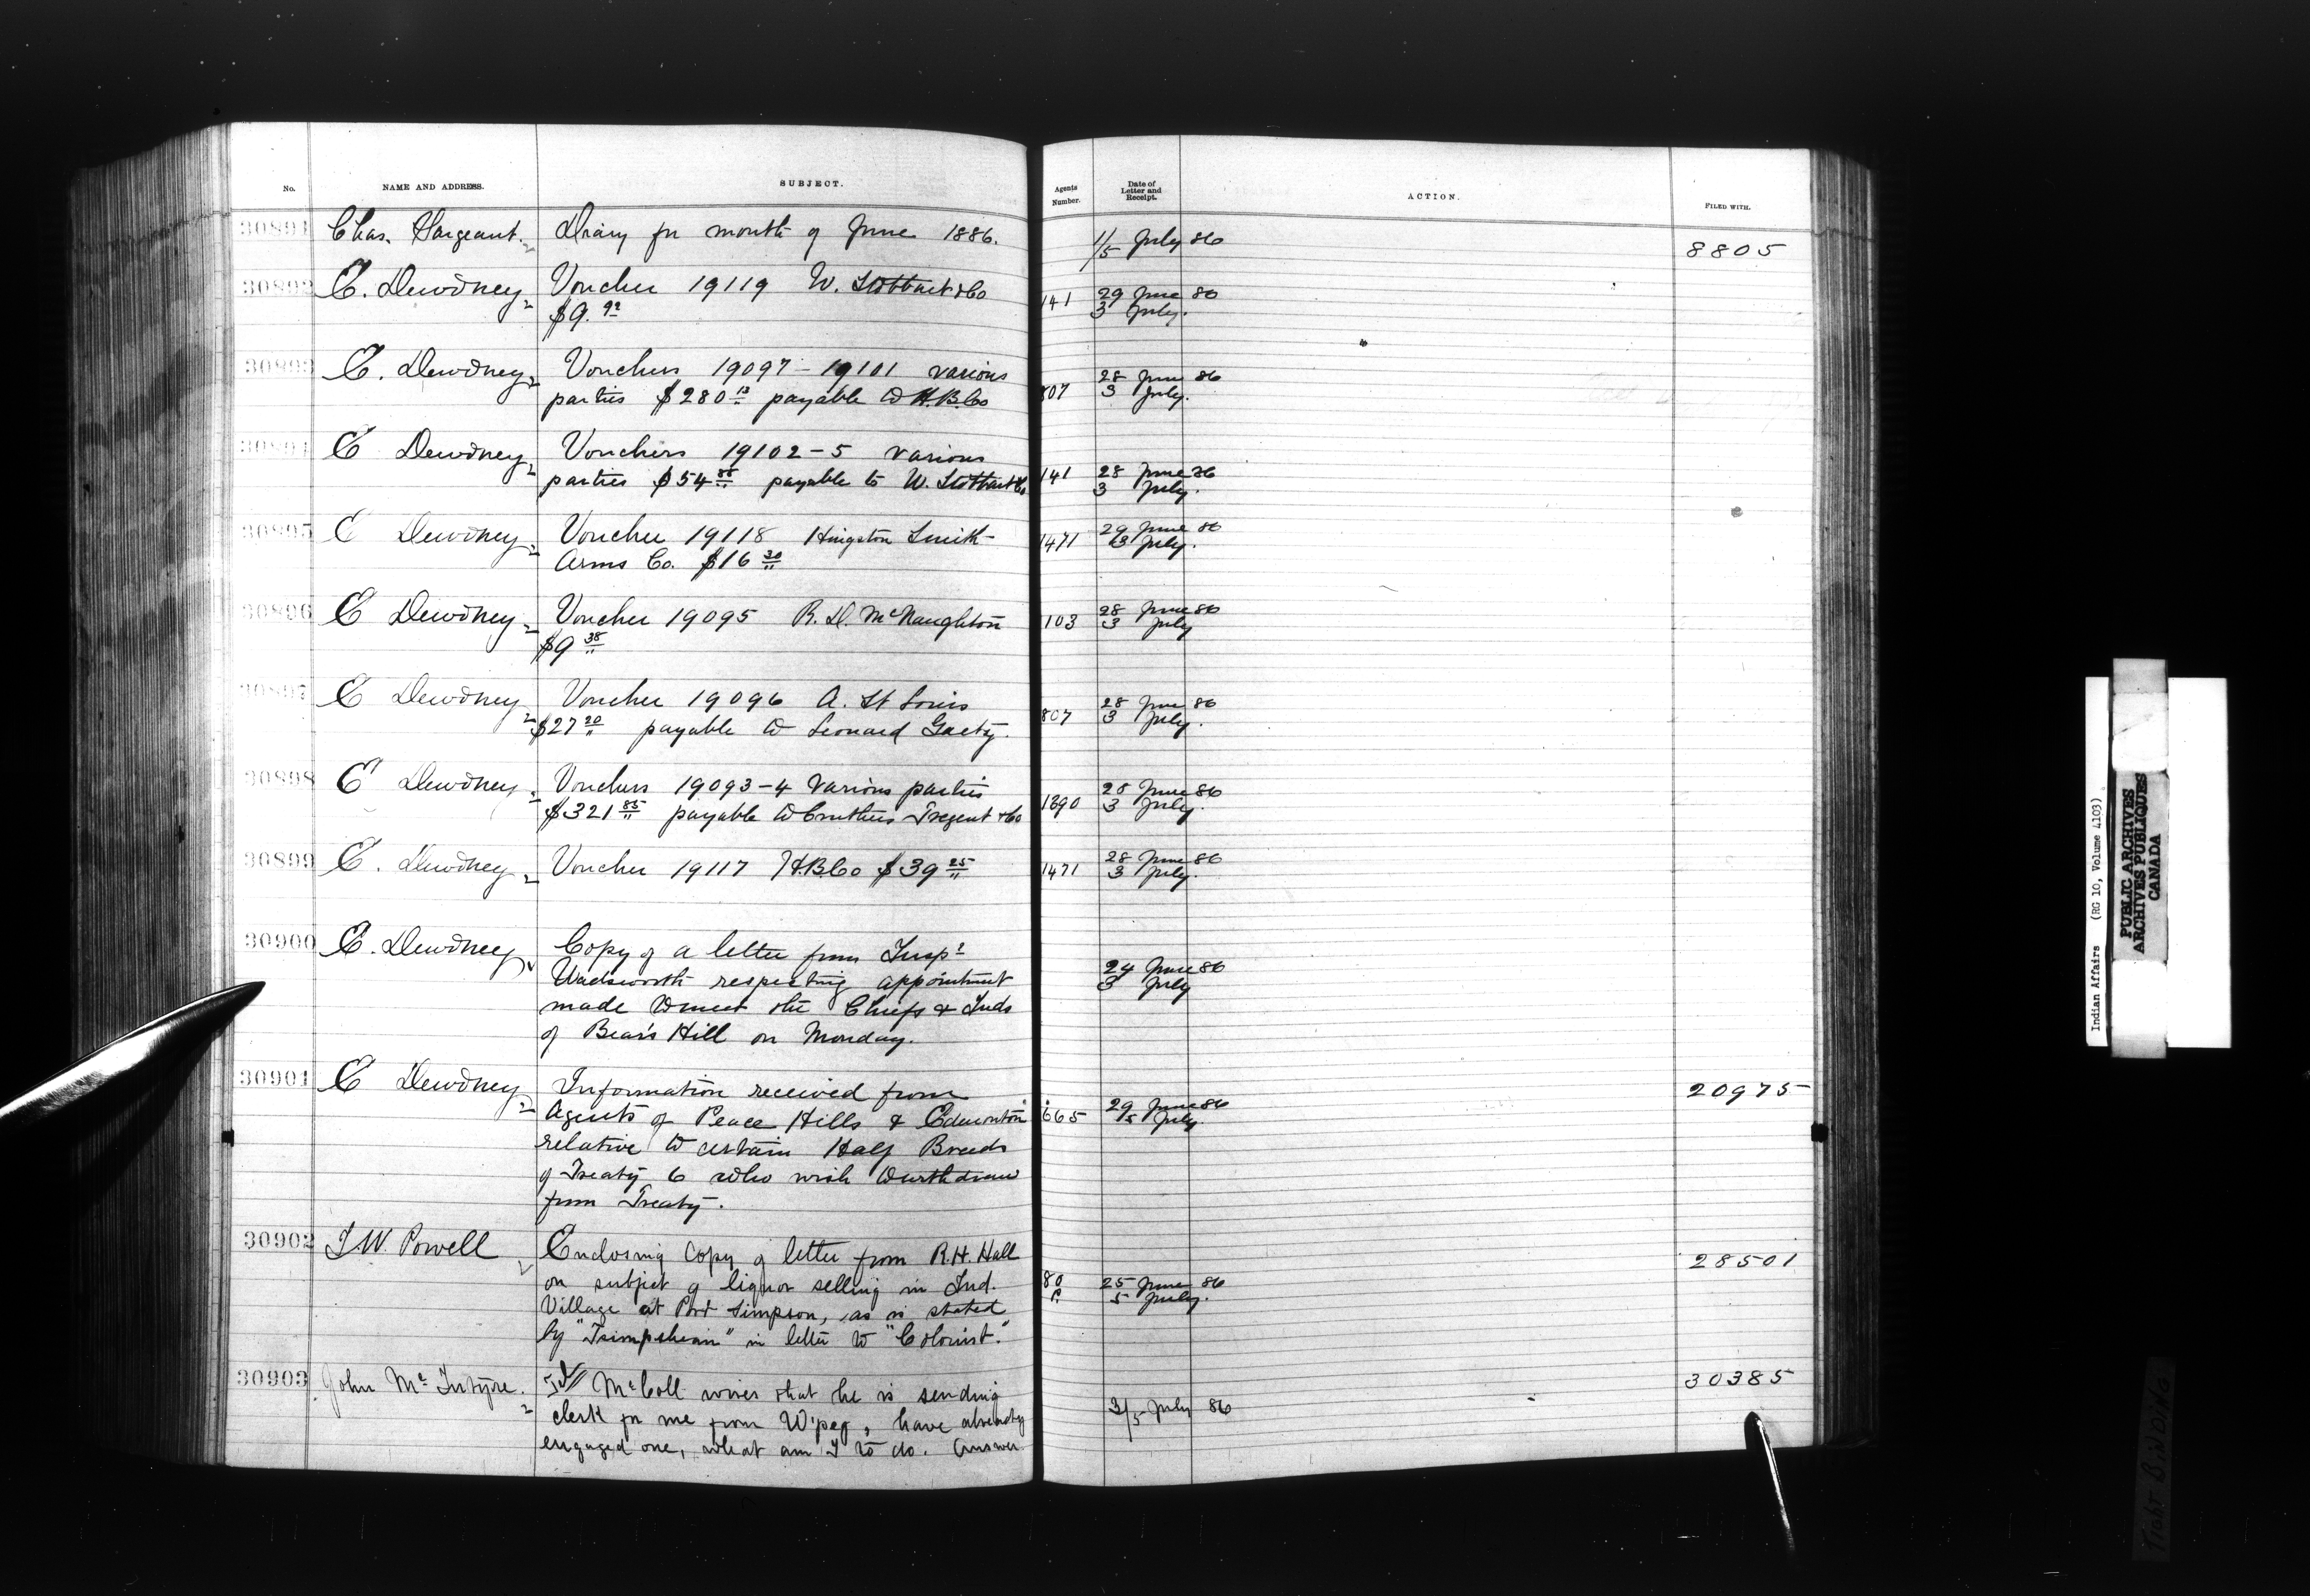 No. NAME AND ADDRESS. SUBJECT. Agents Number. Date of Letter and Receipt. ACTION. FILED WITH.
30891 Chas. Hargeant. Diary for month of June 1886. 1/5 July 86 8805
30892 E. Dewdney Voucher 19119 W. Stobbart & Co 141 29 June 86
$9.92 3 July.
30893 E. Dewdney Vouchers 19097-19101 various 28 June 86
parties $280 13 payable to H.B.Co 807 3 July.
30894 E Dewdney Vouchers 19102-5 various
parties $54 88 payable to W. Stobbart & Co 141 28 June 86
3 July.
30895 E Dewdney Voucher 19118 Hingston Smith 1471 29 June 86
Arms Co. $16 30 3 July.
30896 E Dewdney Voucher 19095 R. D. McNaughton 103 28 June 86
$9 38 3 July
30897 E Dewdney Voucher 19096 A. St Louis 28 June 86
$27 20 payable to Leonard Gaety. 807 3 July.
30898 E Dewdney Vouchers 19093-4 various parties 28 June 86
$321 85 payable to Cruthers Tregent & Co 1290 3 July.
30899 E. Dewdney Voucher 19117 H.B.Co $39 25 1471 28 June 86
3 July.
30900 E. Dewdney Copy of a letter from Inspr
Wadsworth respecting appointment 24 June 86
made to meet the Chiefs & Inds 3 July
of Bear's Hill on Monday.
30901 E Dewdney Information received from 20975
Agents of Peace Hills & Edmonton 665 29 June 86
relative to certain Half Breeds 5 July.
of Treaty 6 who wish to withdraw
from Treaty.
30902 I. W. Powell Enclosing copy of letter from R. H. Hall 28501
on subject of liquor selling in Ind. 80 25 June 86
Village at Port Simpson, as is stated P. 5 July.
by "Tsimpshean" in letter to "Colonist."
30903 John McIntyre. McColl wires that he is sending 30385
clerk for me from W'peg, have already 3/5 July 86
engaged one, what am I to do. Answer.
Indian Affairs (RG 10, Volume 4103)
PUBLIC ARCHIVES
ARCHIVES PUBLIQUES
CANADA
TIGHT BINDING